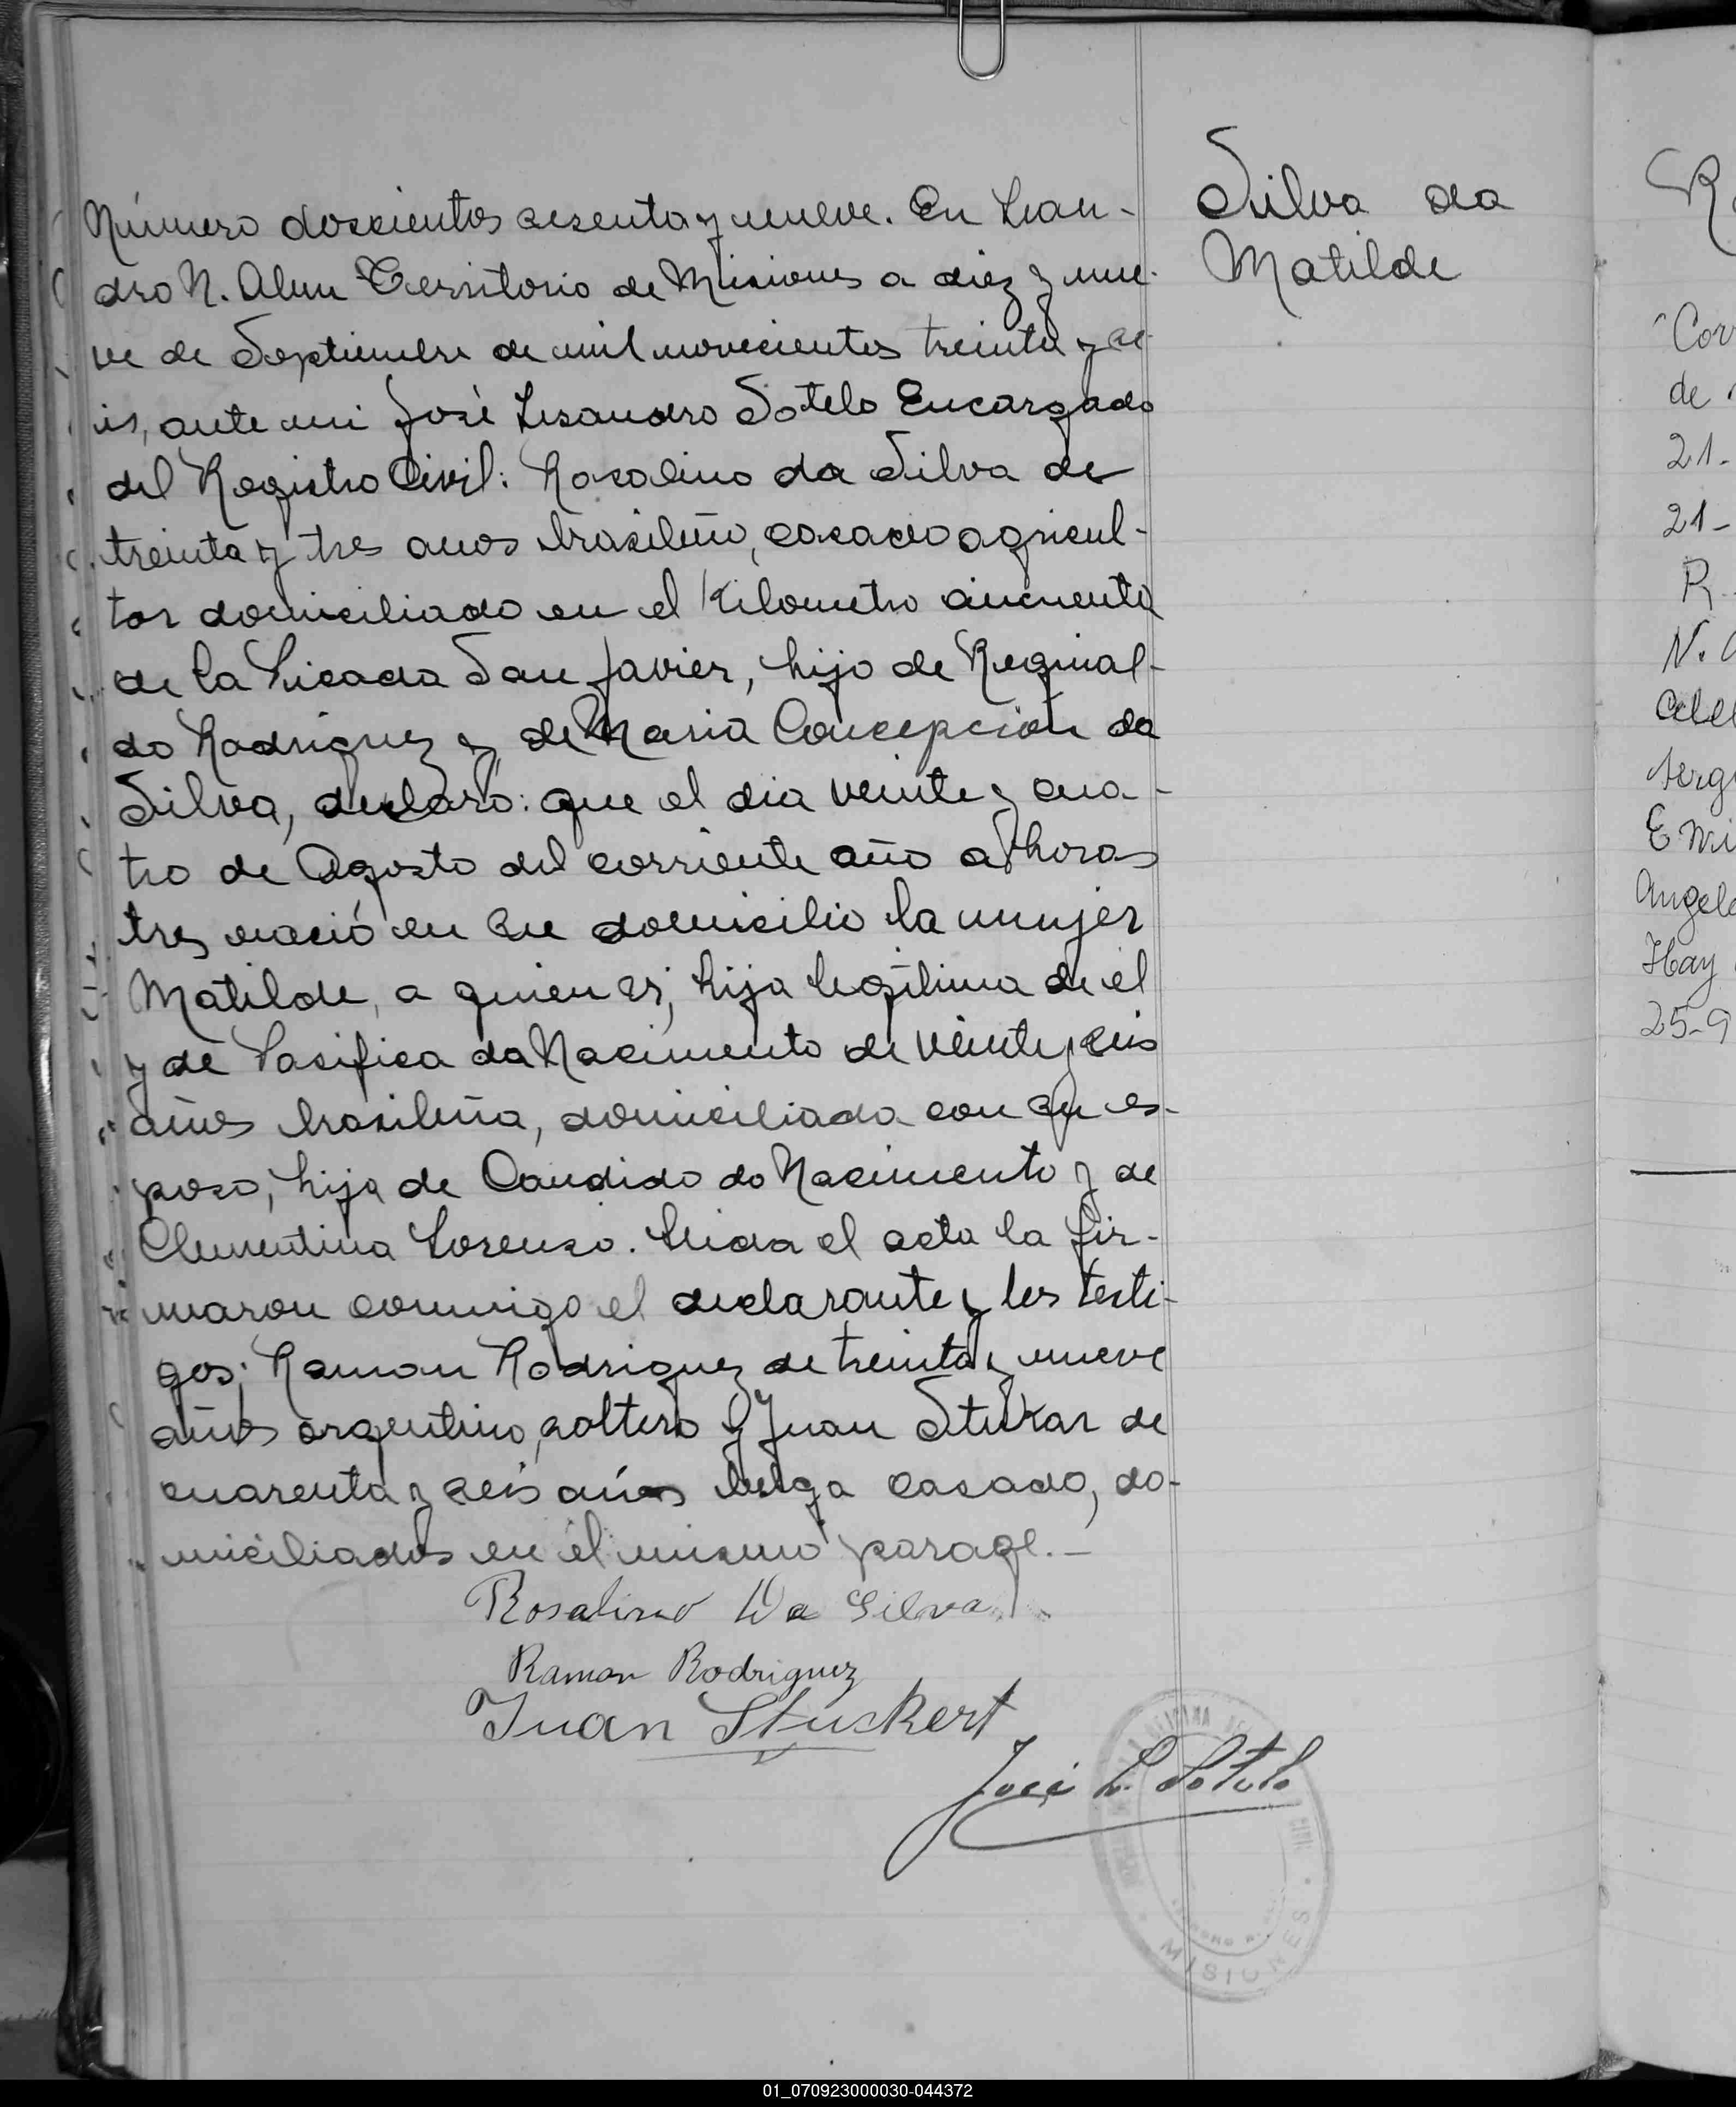 Número doscientos sesenta y nueve. En Lean-
dro N. Alem Territorio de Misiones a diez y nue-
ve de Septiembre de mil novecientos treinta y se-
is, ante mi José Lisandro Sotelo Encargado
del Registro Civil: Rosalino da Silva de
treinta y tres anos brasileño, casado agricul-
tor domiciliado en el Kilometro cincuenta
de la Picada San Javier, hijo de Reginal-
do Rodriguez y de Maria Concepción da
Silva, declaró: que el dia veinte y cua-
tro de Agosto del corriente año a horas
tres nació en su domicilio la mujer
Matilde, a quien es, hija legítima de el
y de Pasifica da Nacimento de veinte y seis
años brasileña, domiciliada con su es-
poso, hija de Candido do Nacimento y de
Clementina Lorenzo. Leida el acta la fir-
maron conmigo el declarante y los testi-
gos; Ramon Rodriguez de treinta y nueve
años argentino, soltero y Juan Stukar de
cuarenta y seis años belga casado, do-
miciliados en el mismo parage.-
Rosalino Da Silva
Ramon Rodriguez
Juan Stuckert
José L. Sotelo
MISIONES
Silva da
Matilde
Cor
de
21-
21-
R.
N.
Angel
Hay
25-9
01_070923000030-044372